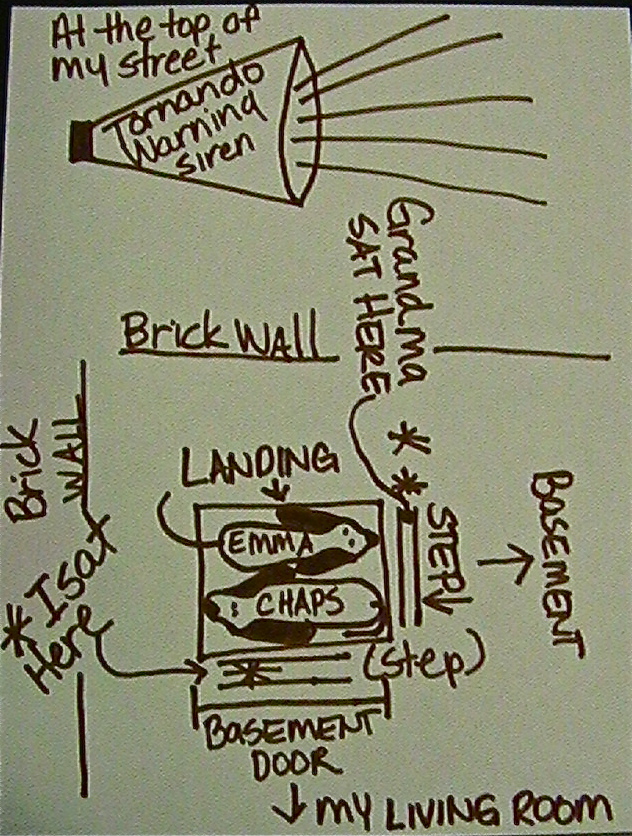 At the top of
my street
Tornando
Warning
siren
Grandma
SAT HERE
Brick WALL
Brick
WALL
LANDING
EMMA
CHAPS
STEP
BASEMENT
* I sat
Here
(step)
BASEMENT
DOOR
MY LIVING ROOM